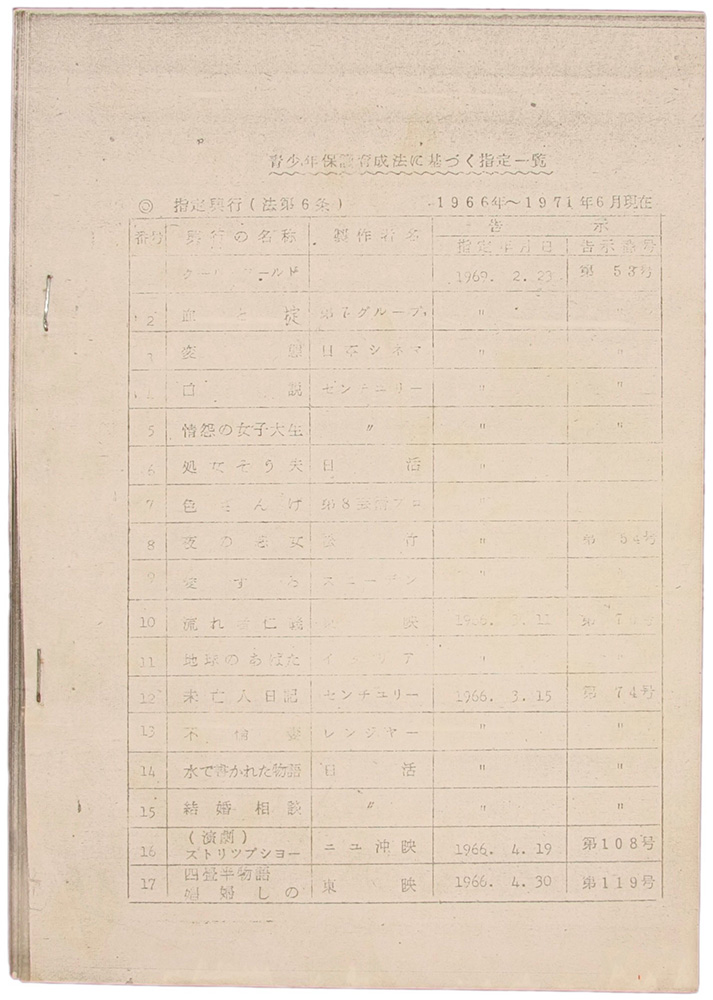 青少年保護育成法に基づく指定一覧
◎ 指定興行(法第6条) 1966年〜1971年6月現在
番号 興行の名称 製作者名 告示
指定年月日 告示番号
ルド 1969. 2. 23 第 53号
2 血と掟 第7グループ 〃
日本シネマ 〃
白 センチュリー 〃 〃
5 情怨の女子大生 〃 〃
6 処女そう失 日活 〃
7 色ざんげ 第8 〃
8 夜の悪女 松竹 〃 第 54号
9 愛する スエーデン 〃
10 流れ者仁義 東映 1966. 3. 11 第 7 号
11 地球のあばた イタリア 〃 〃
12 未亡人日記 センチユリー 1966. 3. 15 第 74号
13 不倫妻 レンジヤー 〃 〃
14 水で書かれた物語 日活 〃 〃
15 結婚相談 〃 〃 〃
16 (演劇)ストリツプシヨー ニユ沖映 1966. 4. 19 第108号
17 四畳半物語 娼婦しの 東映 1966. 4. 30 第119号